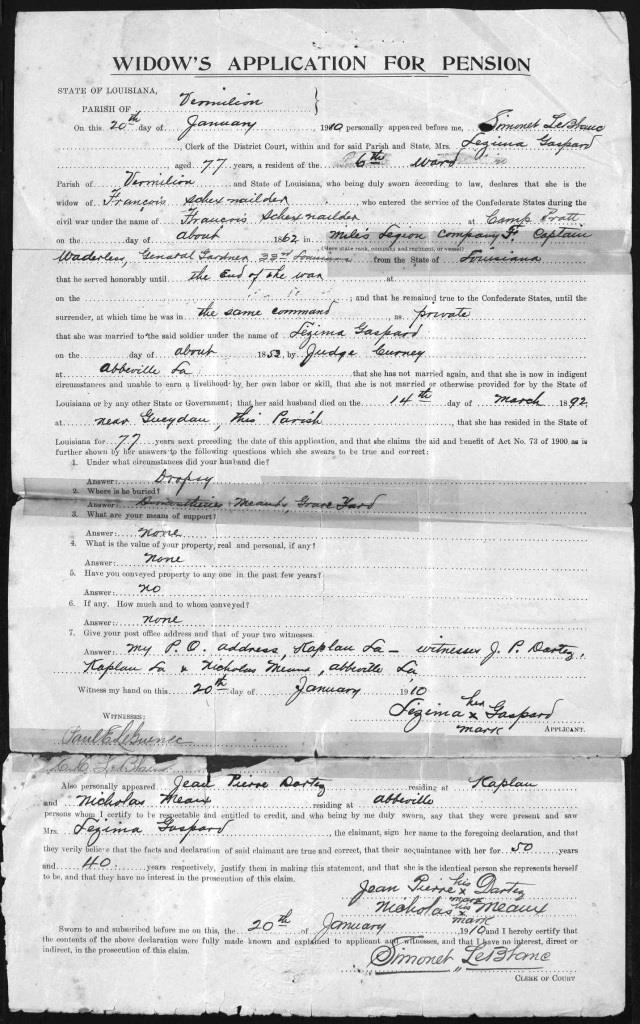 WIDOW'S APPLICATION FOR PENSION
STATE OF LOUISIANA,
PARISH OF Vermilion }
On this 20th day of January 1910 personally appeared before me, Simonet LeBlanc
, Clerk of the District Court, within and for said Parish and State, Mrs. Lezima Gaspard
aged 77 years, a resident of the 6th Ward
Parish of Vermilion, and State of Louisiana, who being duly sworn according to law, declares that she is the
widow of Francois Schexnailder, who entered the service of the Confederate States during the
civil war under the name of Francois Schexnailder at Camp Pratt
on the day of about 1862 in Miles Legion Company F. Captain
(Here state rank, company and regiment, or vessel)
Waderless, General Gardner 33rd Louisiana from the State of Louisiana
that he served honorably until the end of the war at
on the " " ; and that he remained true to the Confederate States, until the
surrender, at which time he was in the same command as private
that she was married to the said soldier under the name of Lezima Gaspard
on the day of about 1853, by Judge Curney
at Abbeville La that she has not married again, and that she is now in indigent
circumstances and unable to earn a livelihood by her own labor or skill, that she is not married or otherwise provided for by the State of
Louisiana or by any other State or Government; that her said husband died on the 14th day of March 1892
at near Gueydan, this Parish that she has resided in the State of
Louisiana for 77 years next preceding the date of this application, and that she claims the aid and benefit of Act No. 73 of 1900, as is
further shown by her answers to the following questions which she swears to be true and correct:
1. Under what circumstances did your husband die?
Answer: Dropsy
2. Where is he buried?
Answer: Meaux Grave Yard
3. What are your means of support?
Answer: none
4. What is the value of your property, real and personal, if any?
Answer: None
5. Have you conveyed property to any one in the past few years?
Answer: no
6. If any. How much and to whom conveyed?
Answer: none
7. Give your post office address and that of your two witnesses.
Answer: my P. O. address, Kaplan La - witnesses J. P. Dartez,
Kaplan La & Nicholas Meaux, Abbeville La
Witness my hand on this 20th day of January 1910
her
Lezima x Gaspard
mark APPLICANT.
WITNESSES:
Paul E LeGuenec
LeBlanc
Also personally appeared Jean Pierre Dartez residing at Kaplan
and Nicholas Meaux residing at Abbeville
persons whom I certify to be respectable and entitled to credit, and who being by me duly sworn, say that they were present and saw
Mrs. Lezima Gaspard, the claimant, sign her name to the foregoing declaration, and that
they verily believe that the facts and declaration of said claimant are true and correct, that their acquaintance with her for 50 years
and 40 years respectively, justify them in making this statement, and that she is the identical person she represents herself
to be, and that they have no interest in the prosecution of this claim.
his
Jean Pierre x Dartez
mark
his
Nicholas x Meaux
mark
Sworn to and subscribed before me on this, the 20th of January 1910 and I hereby certify that
the contents of the above declaration were fully made known and explained to applicant and witnesses, and that I have no interest, direct or
indirect, in the prosecution of this claim.
Simonet LeBlanc
CLERK OF COURT